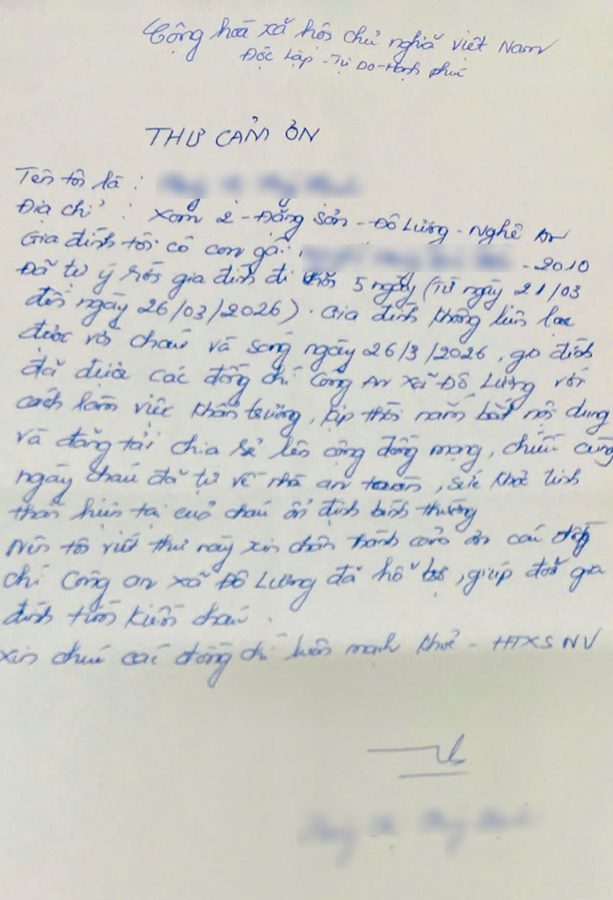 Cộng hoà xã hội chủ nghĩa Việt Nam
Độc Lập - Tự Do - Hạnh phúc
THƯ CẢM ƠN
Tên tôi là :
Địa chỉ : Xóm 2 - Đặng Sơn - Đô Lương - Nghệ An
Gia đình tôi có con gái: - 2010
Đã tự ý rời gia đình đi 5 ngày (Từ ngày 21/03
đến ngày 26/03/2026). Gia đình không liên lạc
được với cháu và sáng ngày 26/3/2026, gia đình
đã được các đồng chí Công An xã Đô Lương với
cách làm việc khẩn trương, kịp thời nắm bắt nội dung
và đăng tải chia sẻ lên cộng đồng mạng, chiều cùng
ngày cháu đã tự về nhà an toàn, sức khoẻ tinh
thần hiện tại của cháu ổn định bình thường
Nên tôi viết thư này xin chân thành cảm ơn các đồng
chí Công an xã Đô Lương đã hỗ trợ, giúp đỡ gia
đình tìm kiếm cháu.
Xin chúc các đồng chí luôn mạnh khoẻ - HTXSNV